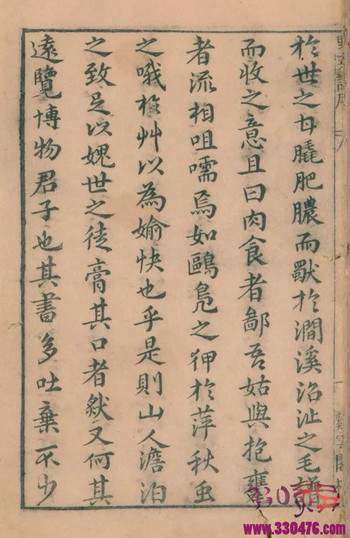 於世之甘脆肥膿而獸於澗溪沼沚之毛譜
而收之意且曰肉食者鄙吾姑與抱甕
者流相咀嚅焉如鷗鳧之狎於萍秋虫
之哦於艸以為媮快也乎是則山人澹泊
之致足以媿世之徒膏其口者猷又何其
遠覽博物君子也其書多吐棄不少
330
www.330476.com